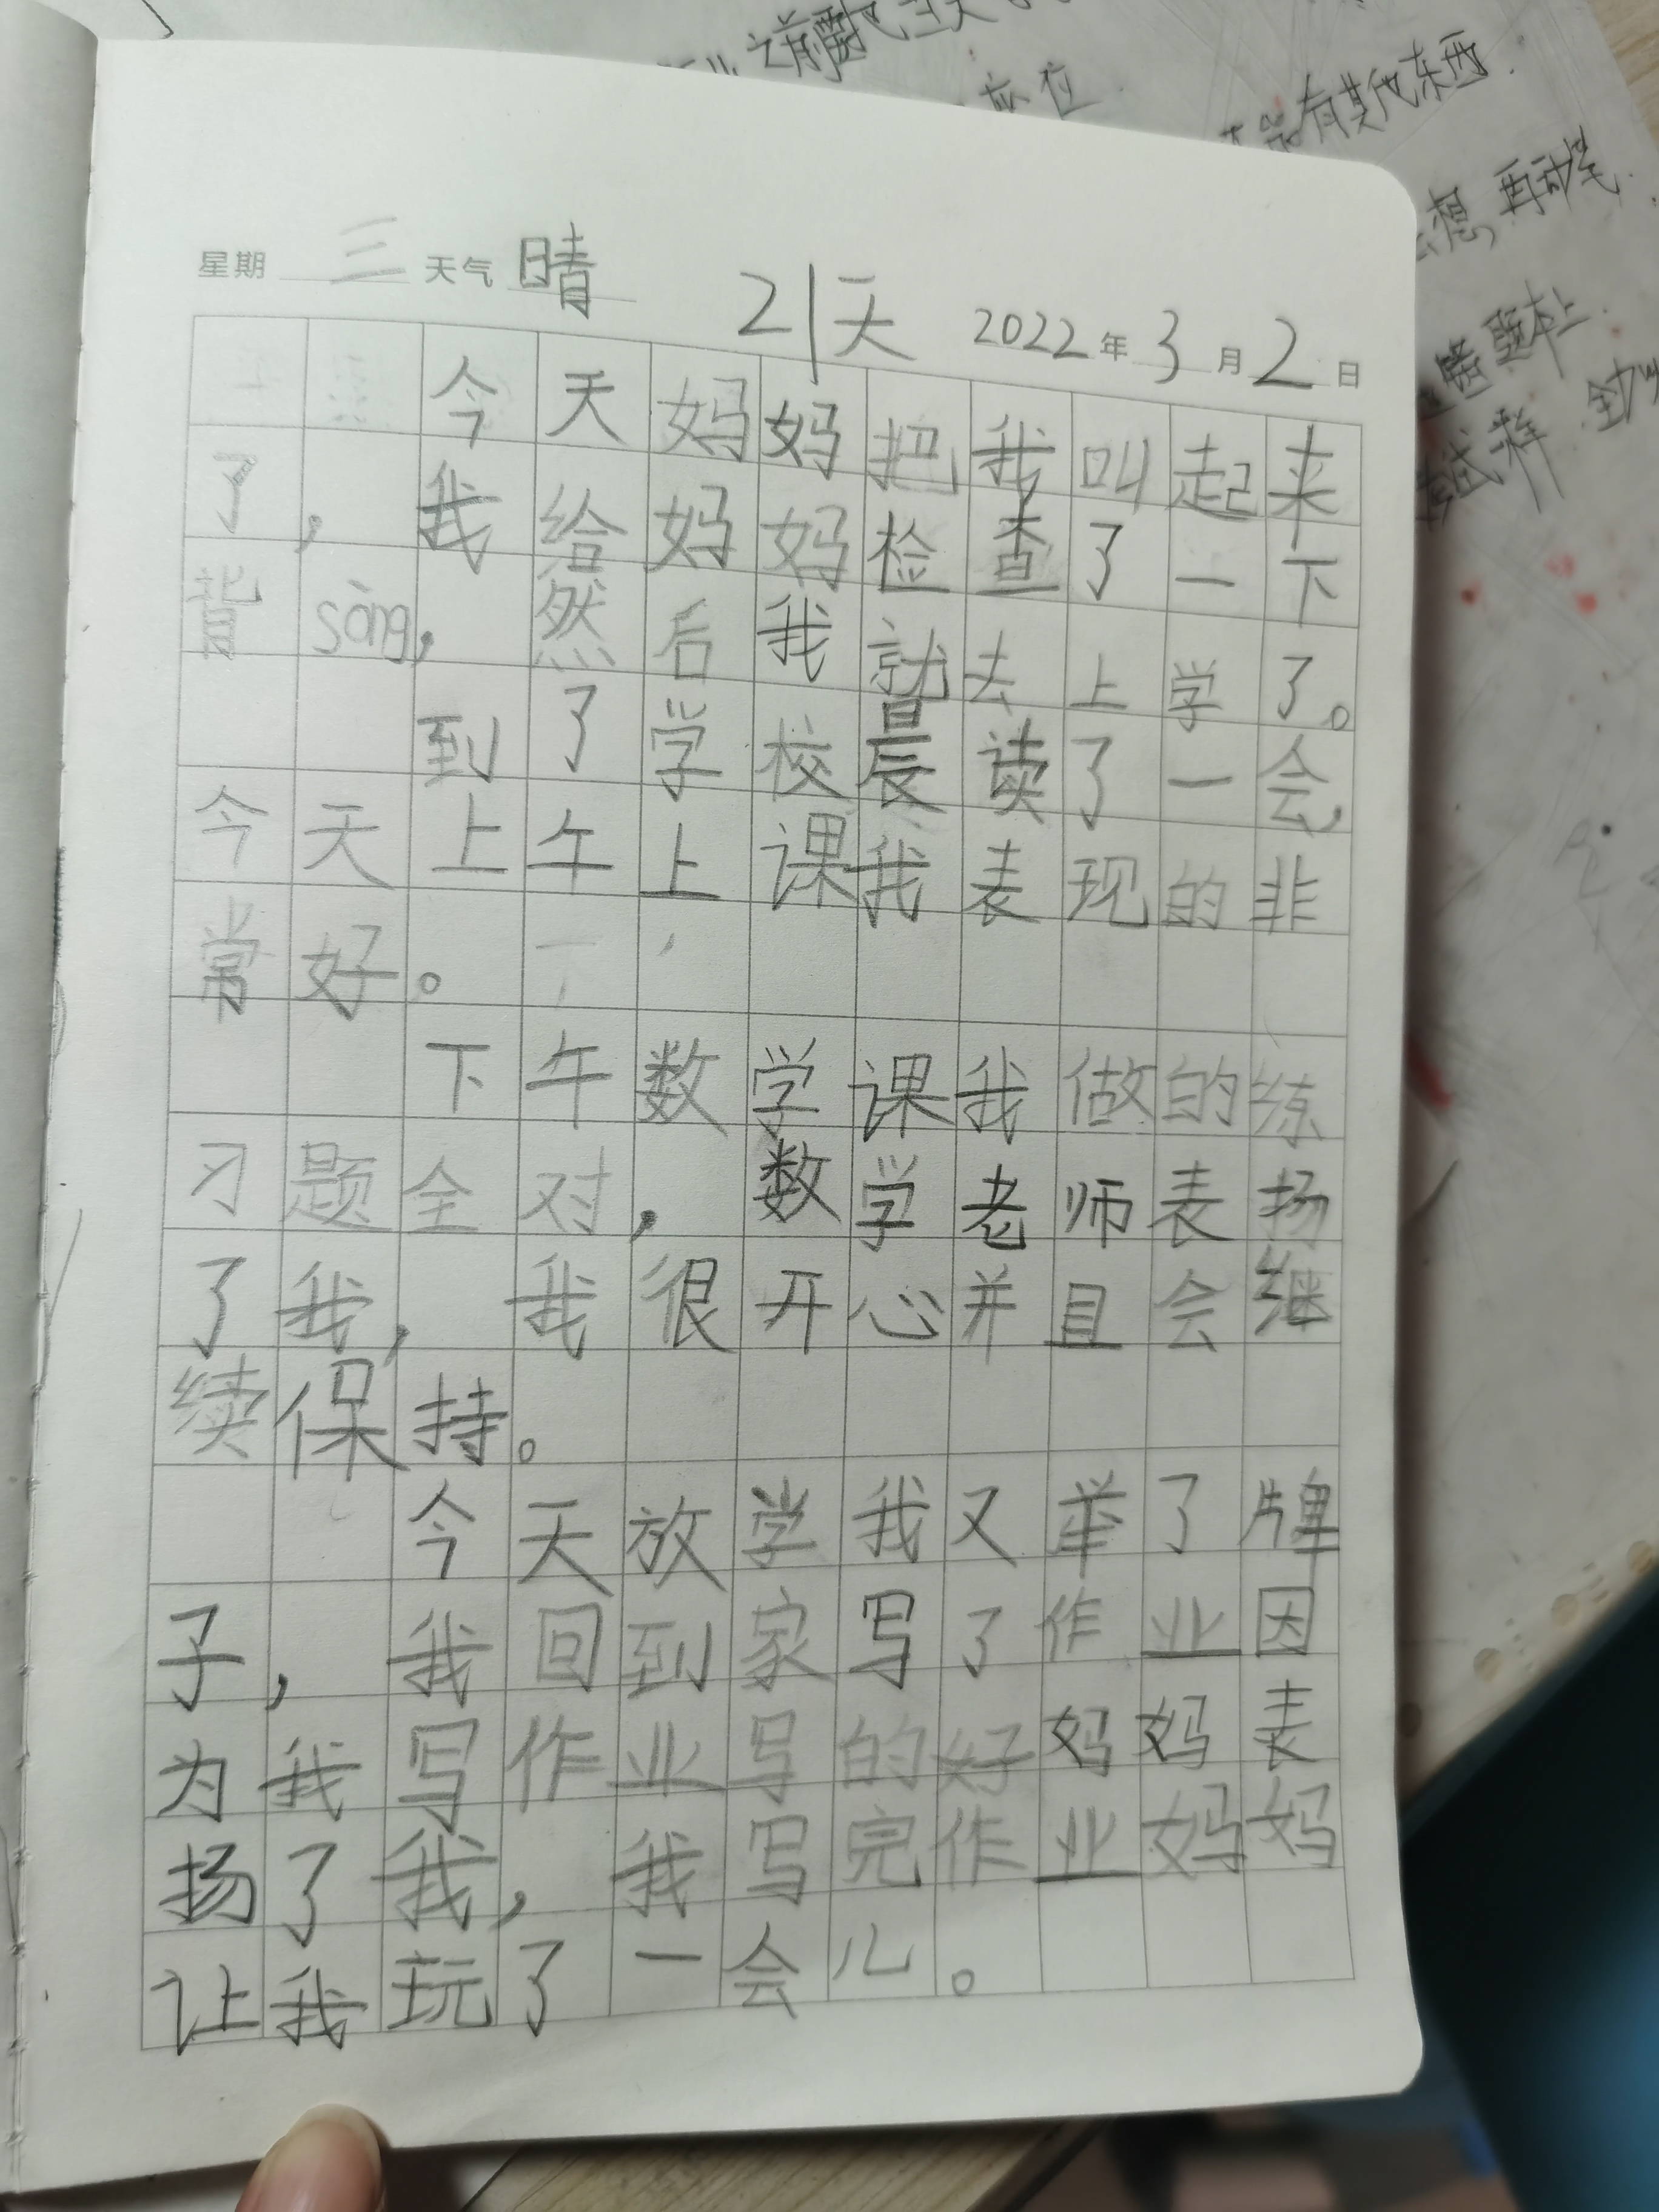 之前
位
有其他东西.
想,再动笔.
题本上.
星期 三 天气 晴 21天 2022年3月2日
今天妈妈把我叫起来
了,我给妈妈检查了一下
背sòng,然后我就去上学了。
到了学校晨读了一会,
今天上午上课我表现的非
常好。
下午数学课我做的练
习题全对,数学老师表扬
了我,我很开心并且会继
续保持。
今天放学我又举了牌
子,我回到家写了作业因
为我写作业写的好妈妈表
扬了我,我写完作业妈妈
让我玩了一会儿。